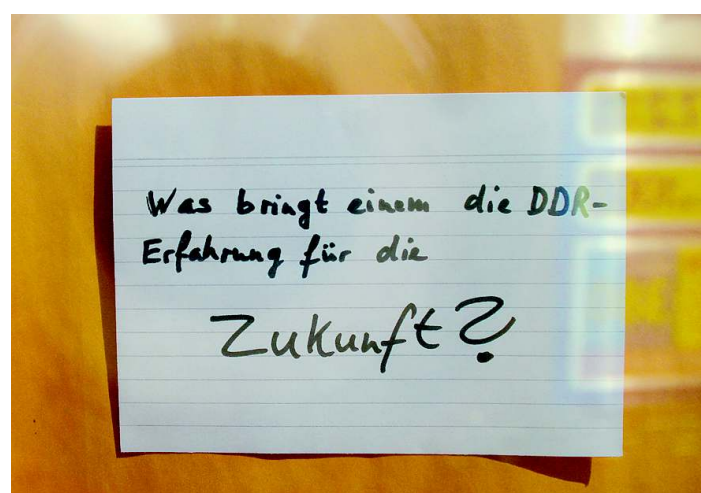 Was bringt einem die DDR-
Erfahrung für die
Zukunft?